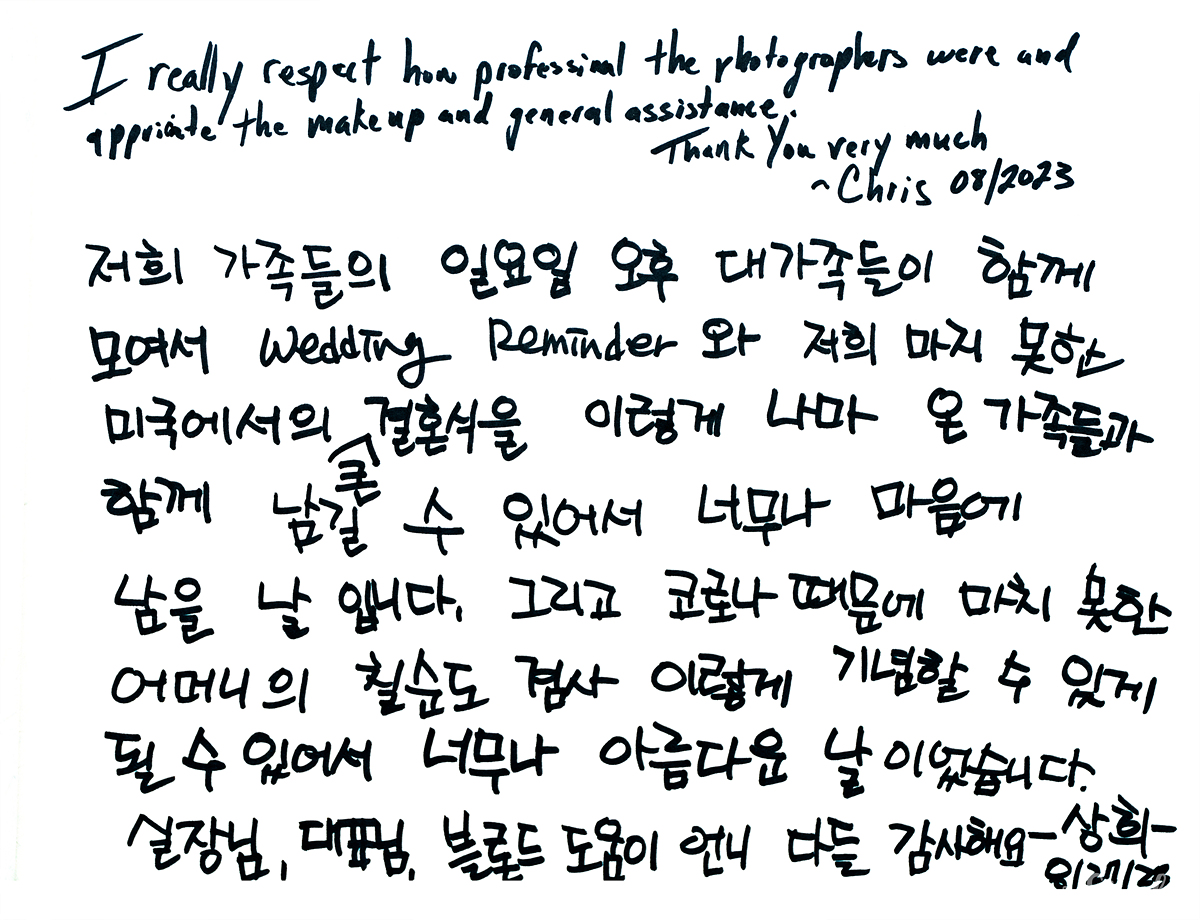 I really respect how professional the photographers were and
appriciate the makeup and general assistance.
Thank You very much
~Chris 08/2023
저희 가족들의 일요일 오후 대가족들이 함께
모여서 Wedding Reminder 와 저희 마지 못한
미국에서의 결혼식을 이렇게 나마 온 가족들과
함께 남길 큰 수 있어서 너무나 마음에
남을 날 입니다. 그리고 코로나 때믐에 마치 못한
어머니의 칠순도 겸사 이렇게 기념할 수 있게
될 수 있어서 너무나 아름다운 날이었습니다.
실장님, 대표님, 블로드 도움이 언니 다들 감사해요-상희-
8/27/23